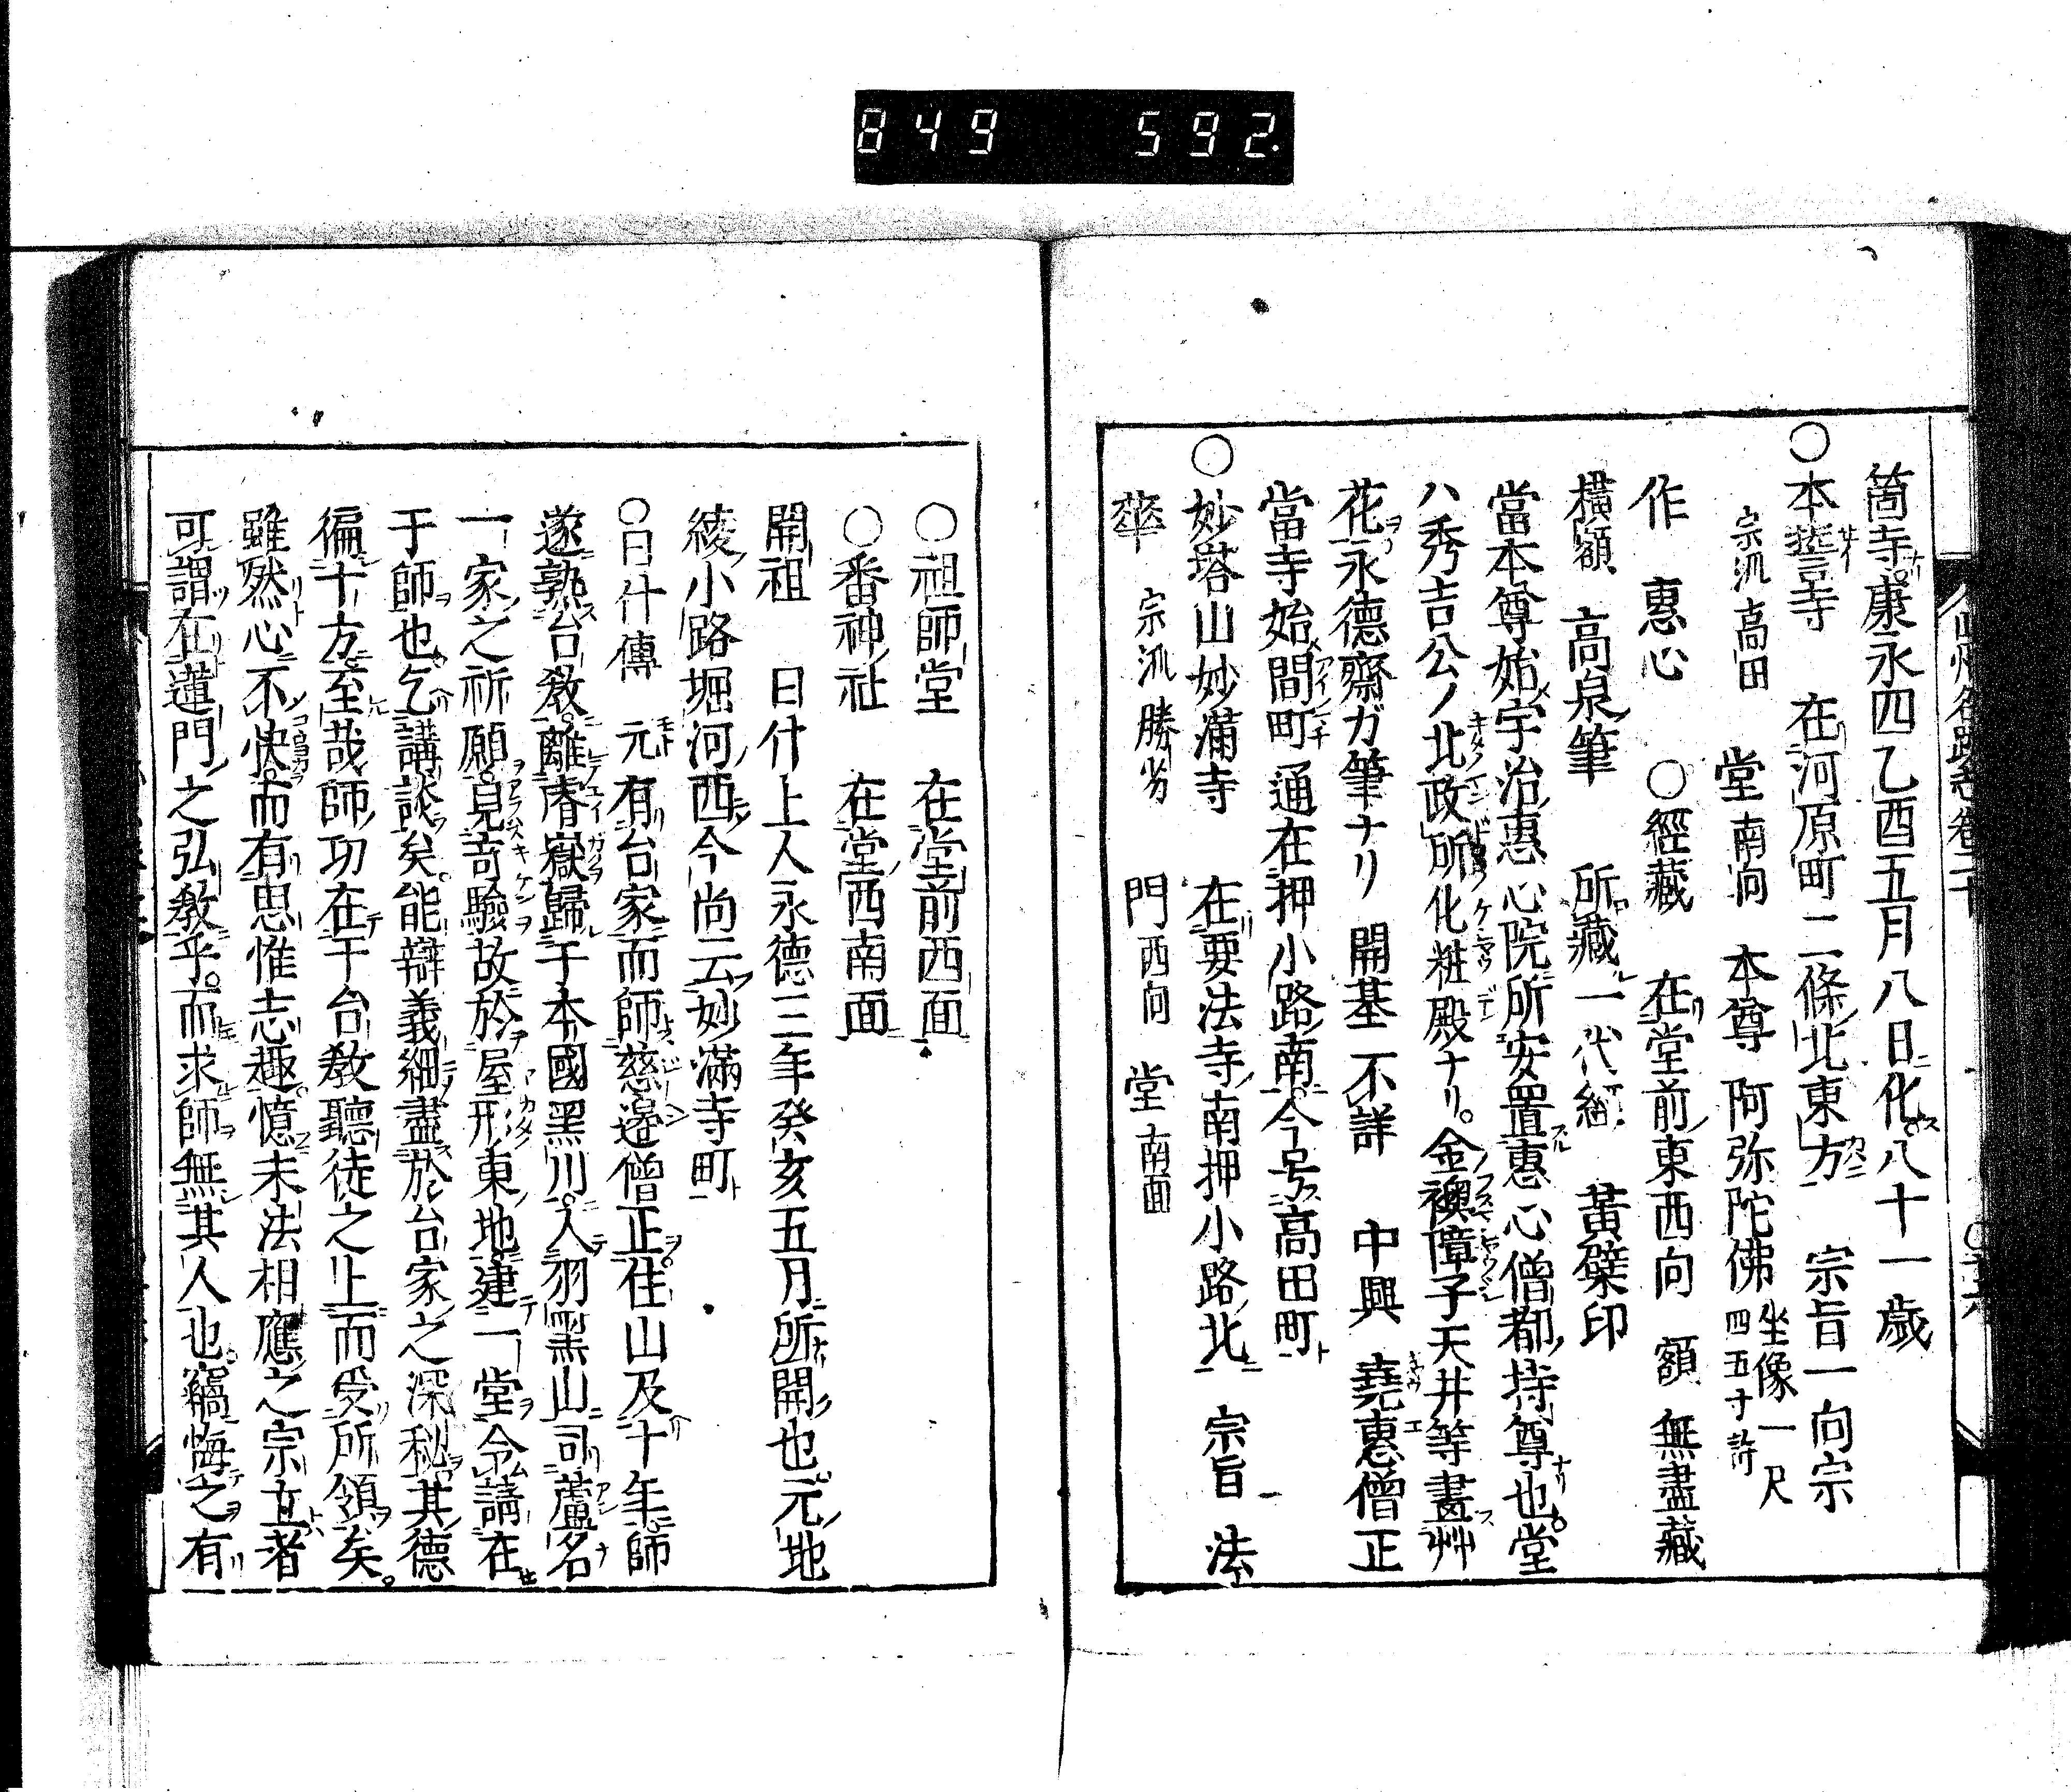 849 592.
箇寺康永四乙酉五月八日化八十一歳
○本誓寺 在河原町二條北東方 宗旨一向宗
宗派高田 堂南向 本尊 阿弥陀佛 坐像一尺四五寸許
作 惠心 ○經藏 在堂前東西向 額 無盡藏
横額 高泉筆 所藏一代經 黄檗印
當本尊始宇治惠心院所安置惠心僧都持尊也堂
ハ秀吉公ノ北政所化粧殿ナリ。金襖障子天井等畫艸
花永德齋ガ筆ナリ 開基不詳 中興 堯惠僧正
當寺始間町通在押小路南今号高田町
○妙塔山妙滿寺 在要法寺南押小路北 宗旨 法
華 宗派勝劣 門西向 堂南面
○祖師堂 在堂前西面
○番神社 在堂西南面
開祖 日什上人永德三年癸亥五月所開也元地
綾小路堀河西今尚云妙滿寺町
○日什傳 元有台家而師慈遍僧正住山及十年師
遂熟台教離睿嶽歸于本國黑川人羽黑山司蘆名
一家之祈願見竒驗故於屋形東地建一堂令講在
于師也乞講談矣能辯義細盡於台家之深秘其德
徧十方至哉師功在于台教聽徒之止而受所領矣。
雖然心不快而有思惟志趣憶未法相應之宗立者
可謂在蓮門之弘教乎。而求師無其人也竊悔之有